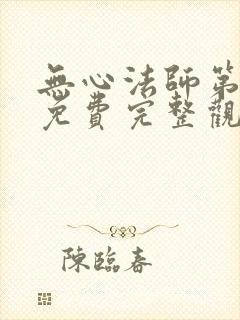 無心法師第
免費完整觀
陳臨春